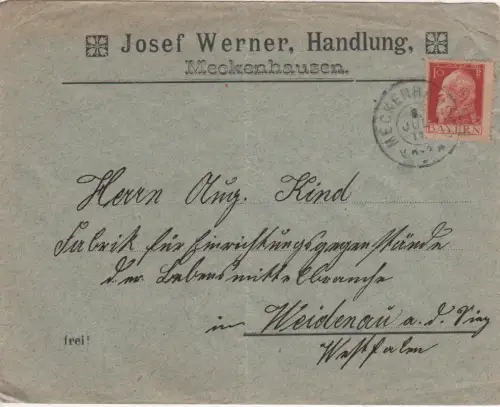 Josef Werner, Handlung,
Meckenhausen.
10 Pf
BAYERN
MECKENHAUSEN
JUL
Herrn Aug. Kind
Fabrik für Einrichtungsgegenstände
der Lebensmittelbranche
in Weidenau a. d. Sieg
Westfalen
frei!